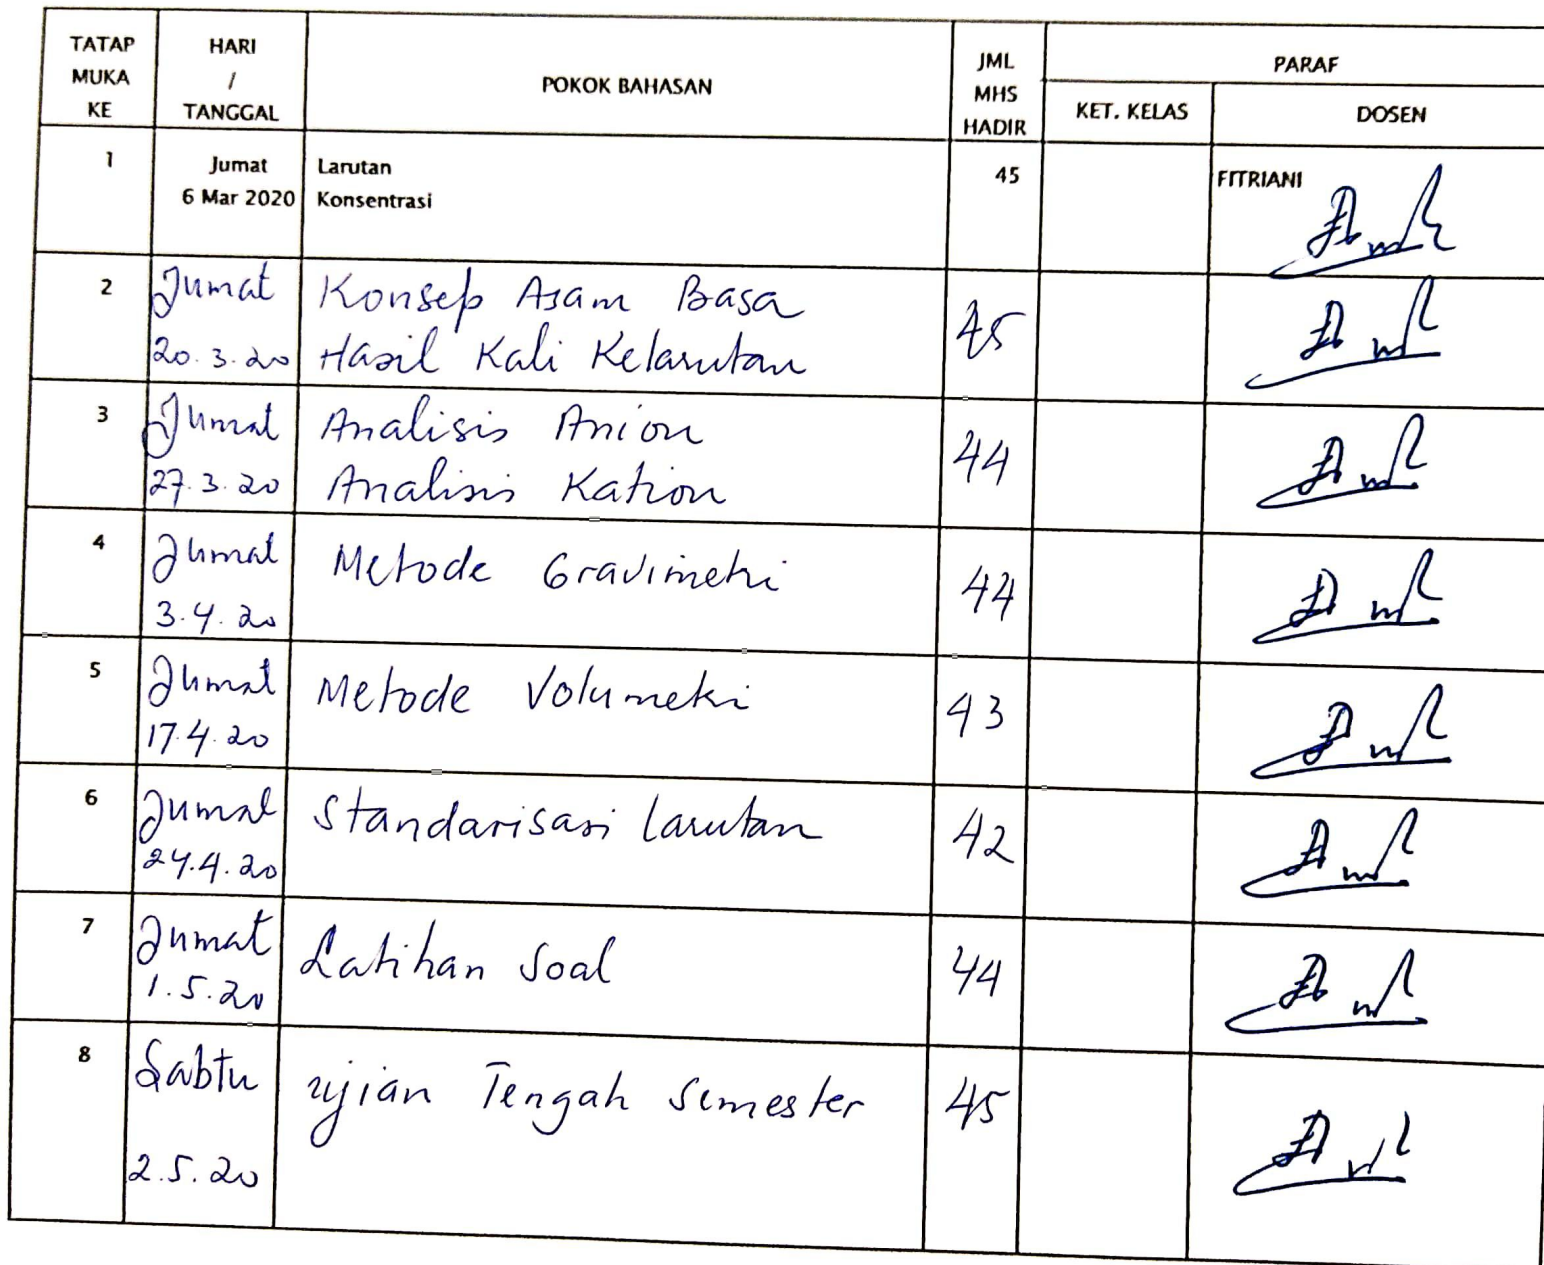 TATAP MUKA KE
HARI / TANGGAL
POKOK BAHASAN
JML MHS HADIR
PARAF
KET. KELAS
DOSEN
1
Jumat
6 Mar 2020
Larutan
Konsentrasi
45
FITRIANI
2
Jumat
20.3.20
Konsep Asam Basa
Hasil Kali Kelarutan
45
3
Jumat
27.3.20
Analisis Anion
Analisis Kation
44
4
Jumat
3.4.20
Metode Gravimetri
44
5
Jumat
17.4.20
Metode Volumetri
43
6
Jumat
24.4.20
Standarisasi larutan
42
7
Jumat
1.5.20
Latihan Soal
44
8
Sabtu
2.5.20
ujian Tengah Semester
45